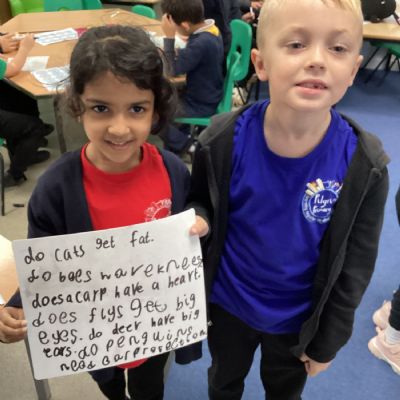 do cats get fat.
do boes waveknees
doesacarp have a heart.
does flys get big
eyes. do deer have big
ears. do penguins
need